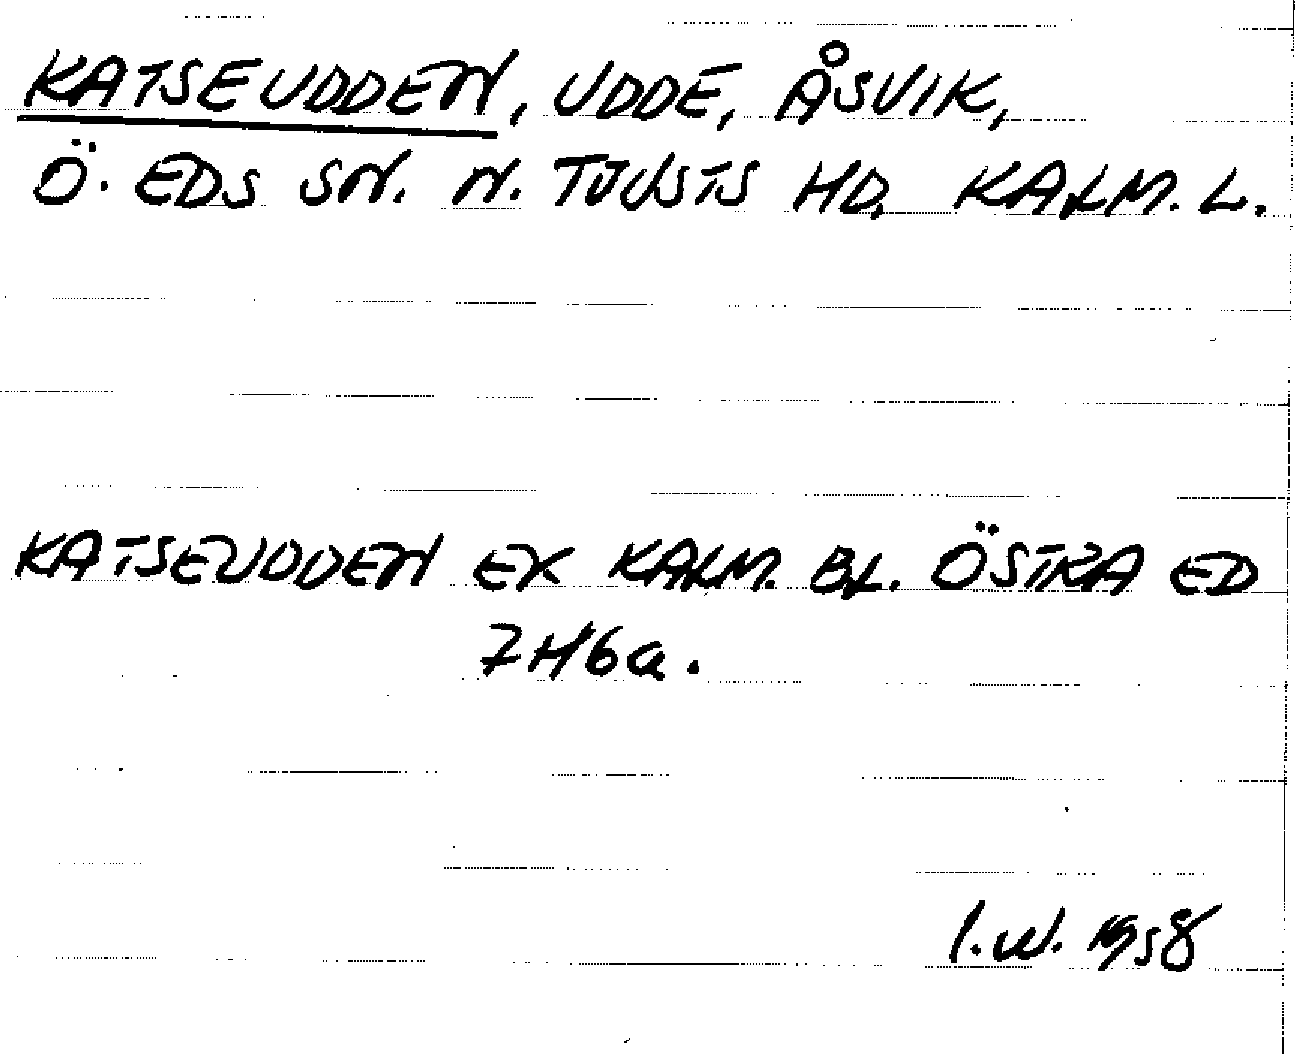 KATSEUDDEN, UDDE, ÅSVIK,
Ö. EDS SN. N. TJUSTS HD. KALM. L.
KATSEUDDEN EK KALM. BL. ÖSTRA ED
7H6a.
I.W. 1958